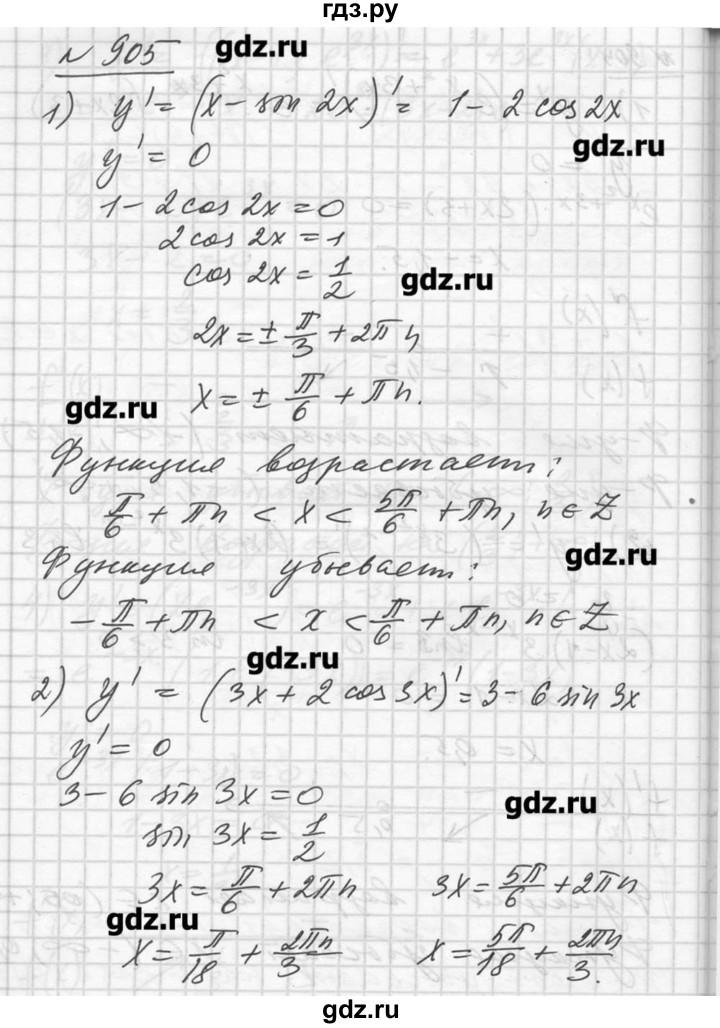 гдз.ру
№ 905 gdz.ru
1) y' = (x - sin 2x)' = 1 - 2 cos 2x
gdz.ru
y' = 0
1 - 2cos 2x = 0
2cos 2x = 1
cos 2x = 1/2 gdz.ru
2x = ± π/3 + 2πn
gdz.ru x = ± π/6 + πn.
Функция возрастает:
π/6 + πn < x < 5π/6 + πn, n ∈ Z
gdz.ru
Функция убывает:
-π/6 + πn < x < π/6 + πn, n ∈ Z
gdz.ru
2) y' = (3x + 2 cos 3x)' = 3 - 6 sin 3x
y' = 0
3 - 6 sin 3x = 0
gdz.ru
sin 3x = 1/2
3x = π/6 + 2πn 3x = 5π/6 + 2πn
gdz.ru
x = π/18 + 2πn/3 x = 5π/18 + 2πn/3.
gdz.ru